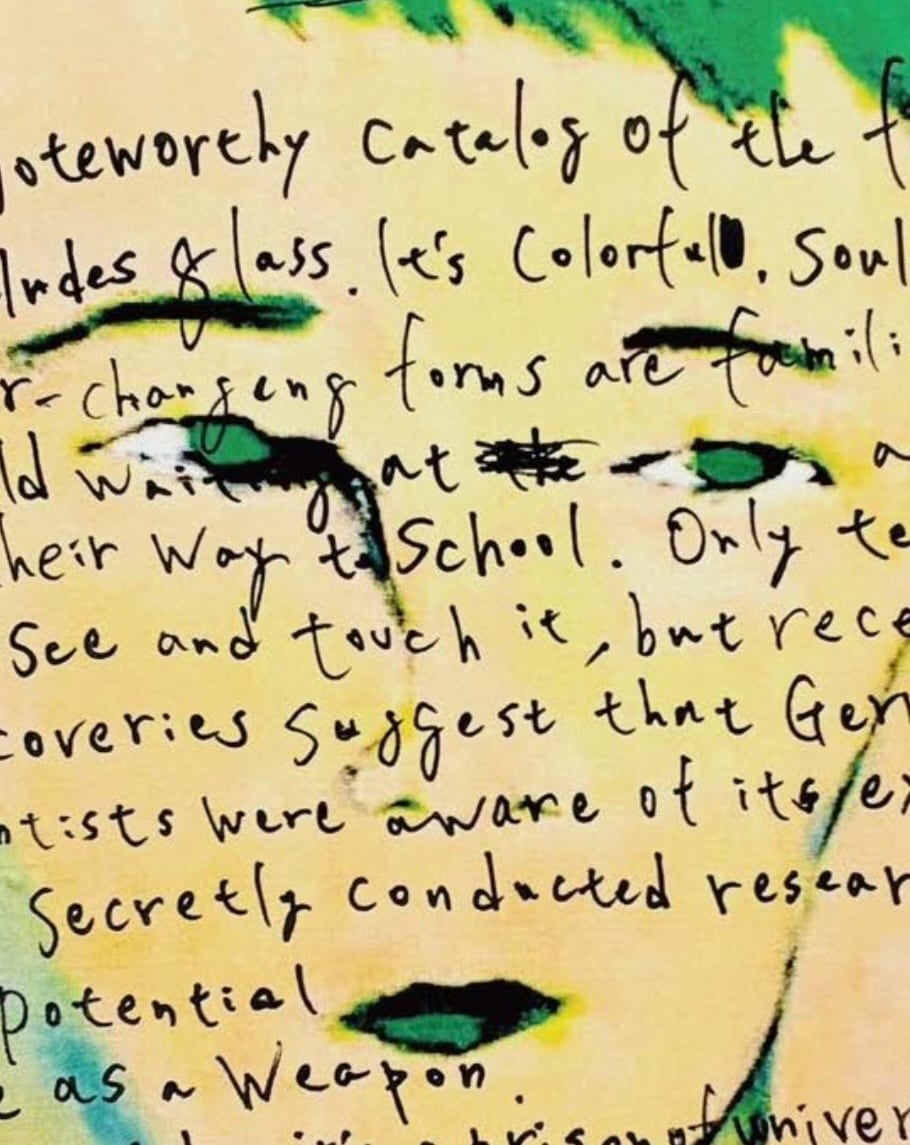 oteworthy Catalog of the f
ludes glass. It's Colorful. Soul
r-changeng forms are famili
ld waiting at a
heir Way to School. Only te
See and touch it, but rece
coveries Suggest that Ger
ntists were aware of its ex
Secretly conducted resear
potential
e as a Weapon.
prison of univer